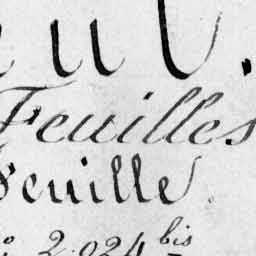 Feuilles
Feuille
2.024 bis